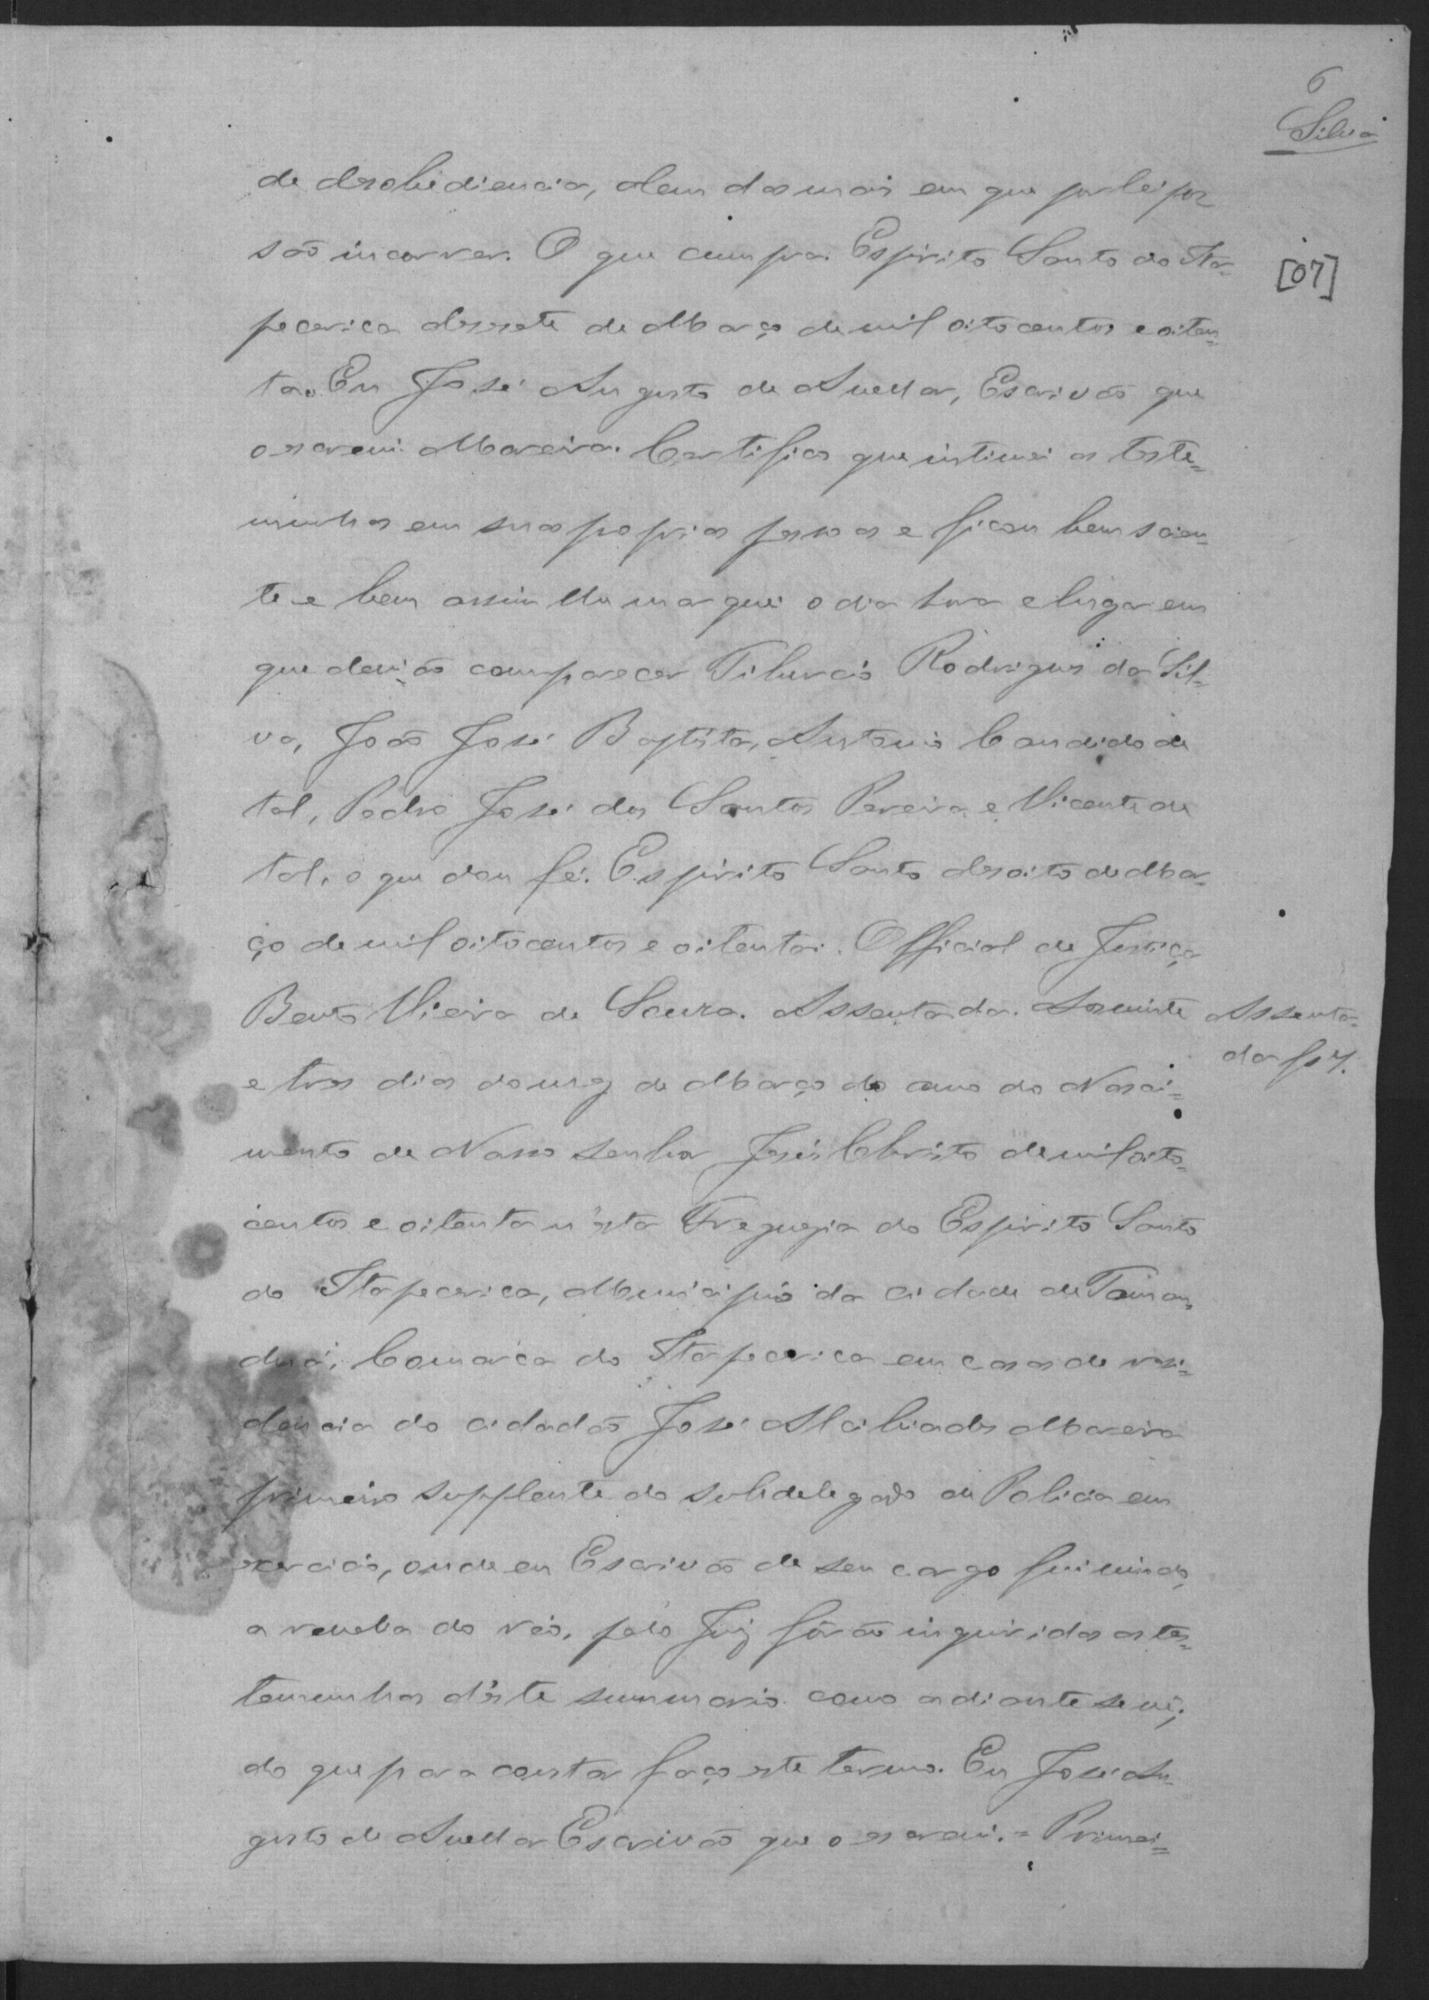 6
Silva
de desobediencia, alem das mais em que por lei pos
são incorrer. O que cumpra. Espirito Santo do Ita-
[07]
pecerica desesete de Março de mil oitocentos e oiten=
ta. Eu José Augusto de Avellar, Escrivão que
o escrevi. Moreira. Certifico que intimei as teste=
munhas em suas propias pessoas e ficou bem scien=
te e bem assim lhe marquei o dia hora e lugar em
que devião comparecer Tiburcio Rodrigues da Sil=
va, João José Baptista, Antonio Candido de
tal, Pedro José dos Santos Pereira e Vicente de
tal, o que dou fé. Espirito Santo desoito de Mar-
ço de mil oitocentos e oitenta. Official de Justiça
Bento Vieira de Souza. Assentada. Aos vinte
Assenta=
da fs 7.
e tres dias do mez de Março do anno do Nasci=
mento de Nosso Senhor Jesús Christo de mil oito=
centos e oitenta n'esta Freguezia do Espirito Santo
do Itapecerica, Municipio da cidade de Taman=
duá, Comarca do Itapecerica em casas de resi=
dencia do cidadão José Alcibiades Moreira
primeiro supplente do subdelegado de Policia em
exercicio, onde eu Escrivão de seu cargo fui vindo,
a revelia do réo, pelo Juiz forão inquiridas as tes=
temunhas d'este summario como adiante se vê;
do que para constar faço este termo. Eu José Au=
gusto de Avellar Escrivão que o escrevi. = Primei=